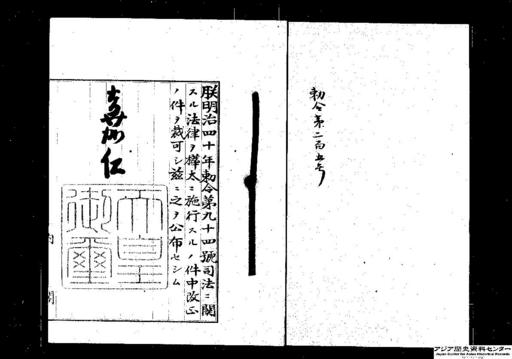 勅令第二百五号
朕明治四十年勅令第九十四號司法ニ關
スル法律ヲ樺太ニ施行スルノ件中改正
ノ件ヲ裁可シ茲ニ之ヲ公布セシム
嘉仁
天皇
御璽
内閣
アジア歴史資料センター
Japan Center for Asian Historical Records